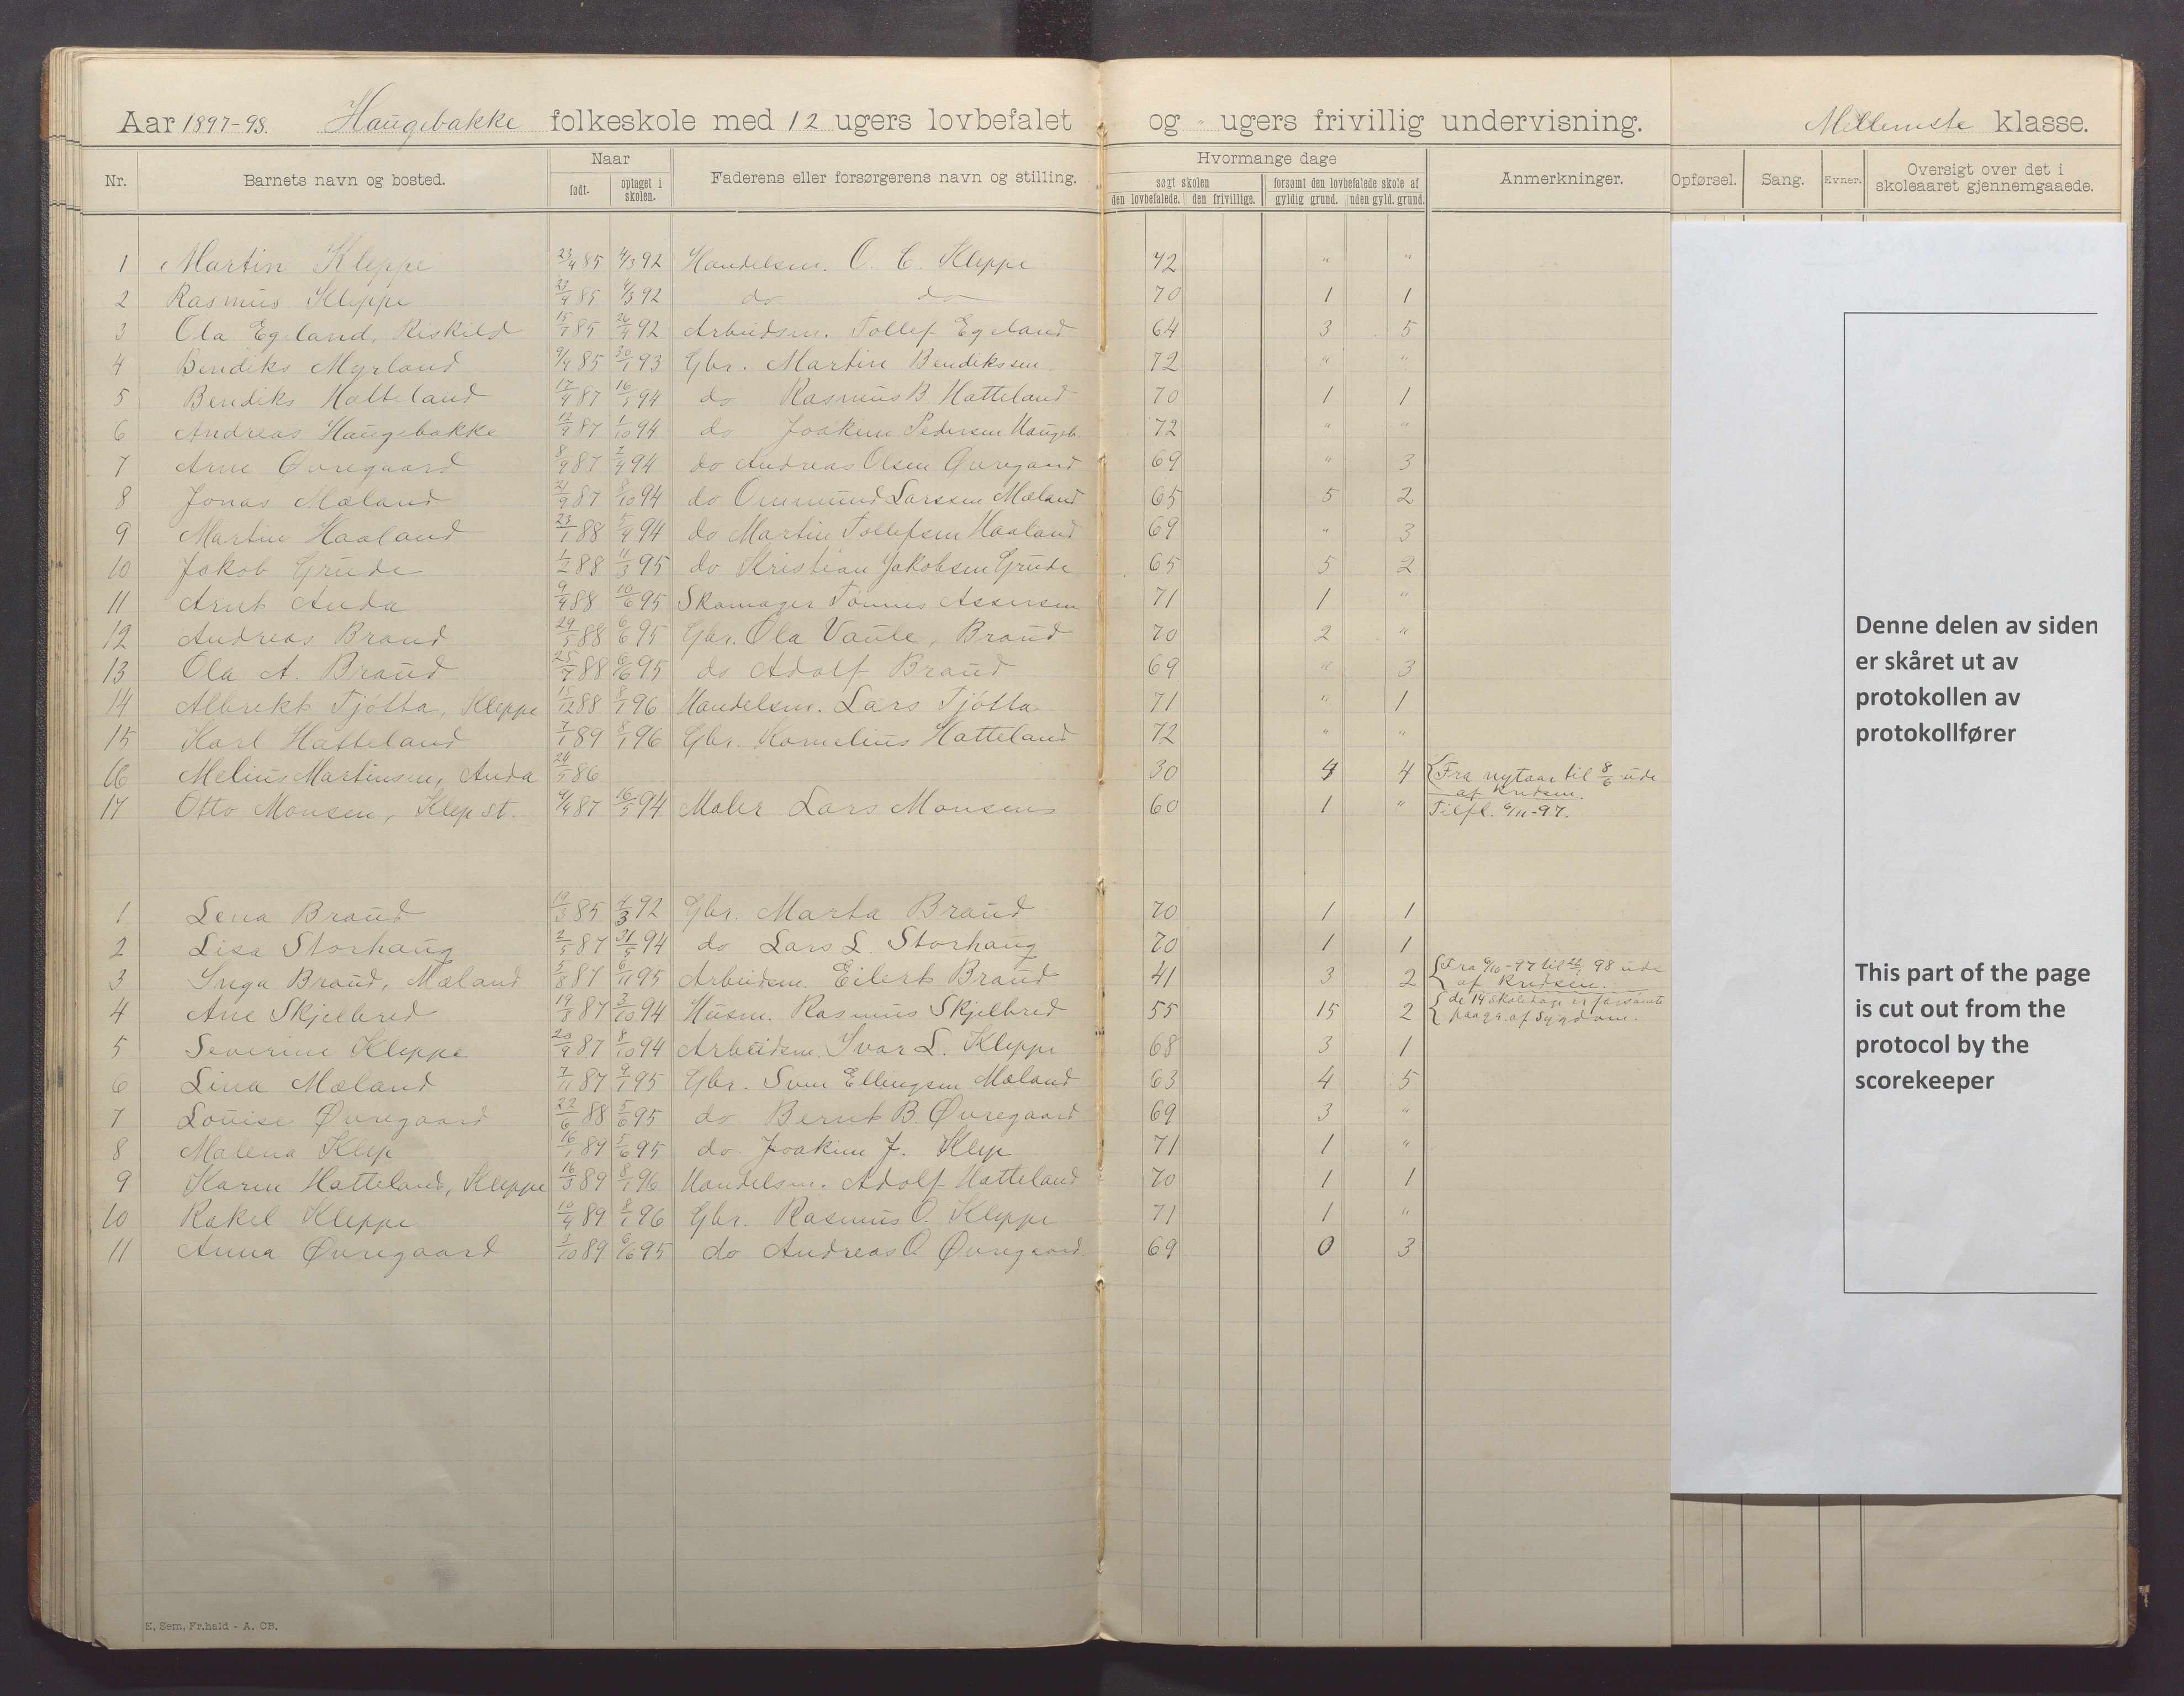 Aar 1897-98. Haugebakke folkeskole med 12 ugers lovbefalet og " ugers frivillig undervisning. Mellemste klasse.
Nr. Barnets navn og bosted. Naar født. optaget i skolen. Faderens eller forsørgerens navn og stilling. Hvormange dage søgt skolen den lovbefalede. den frivillige. forsømt den lovbefalede skole af gyldig grund. uden gyld. grund. Anmerkninger. Opførsel. Sang. Evner. Oversigt over det i skoleaaret gjennemgaaede.
1 Martin Kleppe 23/4 85 4/3 92 Handelsm. O. C. Kleppe 72 " "
2 Rasmus Kleppe 23/4 85 4/3 92 do do 70 1 1
3 Ola Egeland, Riskild 15/7 85 26/4 92 Arbeidsm. Tollef Egeland 64 3 5
4 Bendiks Myrland 9/9 85 30/1 93 Gbr. Martin Bendikssen 72 " "
5 Bendiks Hatteland 17/4 87 16/5 94 do Rasmus B. Hatteland 70 1 1
6 Andreas Haugebakke 12/9 87 1/10 94 do Joakim Pedersen Haugeb. 72 " "
7 Arne Øvregaard 8/9 87 2/4 94 do Andreas Olsen Øvregaard 69 " 3
8 Jonas Mæland 21/9 87 8/10 94 do Ommund Larssen Mæland 65 5 2
9 Martin Haaland 23/1 88 5/4 94 do Martin Tollefsen Haaland 69 " 3
10 Jakob Grude 1/2 88 11/3 95 do Kristian Jakobsen Grude 65 5 2
11 Arnt Anda 9/4 88 10/6 95 Skomager Tønnes Assersen 71 1 "
12 Andreas Braud 29/5 88 6/6 95 Gbr. Ola Vaule, Braud 70 2 "
13 Ola A. Braud 25/7 88 6/6 95 do Adolf Braud 69 " 3
14 Albrekt Tjøtta, Kleppe 15/12 88 8/1 96 Handelsm. Lars Tjøtta 71 " 1
15 Karl Hatteland 7/1 89 8/1 96 Gbr. Kornelius Hatteland 72 " "
16 Melius Martinsen, Anda 24/5 86 30 4 4 Fra nytaar til 8/6 ude
af kredsen.
17 Otto Monsen, Klep st. 4/4 87 16/5 94 Maler Lars Monsen 60 1 " Tilfl. 6/11-97.
1 Lena Braud 19/3 85 4/3 92 Gbr. Marta Braud 70 1 1
2 Lisa Storhaug 2/5 87 31/5 94 do Lars L. Storhaug 70 1 1
3 Inga Braud, Mæland 5/8 87 6/11 95 Arbeidsm. Eilert Braud 41 3 2 Fra 6/10-97 til 21/1 98 ude
af kredsen.
4 Ane Skjelbred 19/8 87 3/10 94 Husm. Rasmus Skjelbred 55 15 2 de 14 skoledage er forsømte
paa gr. af sygdom.
5 Severine Kleppe 20/9 87 8/10 94 Arbeidsm. Ivar L. Kleppe 68 3 1
6 Lina Mæland 7/11 87 9/1 95 Gbr. Sven Ellingsen Mæland 63 4 5
7 Louise Øvregaard 22/6 88 5/6 95 do Bernt B. Øvregaard 69 3 "
8 Malena Klep 16/1 89 5/6 95 do Joakim J. Klep 71 1 "
9 Karen Hatteland, Kleppe 16/3 89 8/1 96 Handelsm. Adolf Hatteland 70 1 1
10 Rakel Kleppe 10/4 89 8/1 96 Gbr. Rasmus O. Kleppe 71 1 "
11 Anna Øvregaard 3/10 89 6/6 95 do Andreas O. Øvregaard 69 0 3
E, Sem, Fr.hald - A. CB.
Denne delen av siden
er skåret ut av
protokollen av
protokollfører
This part of the page
is cut out from the
protocol by the
scorekeeper